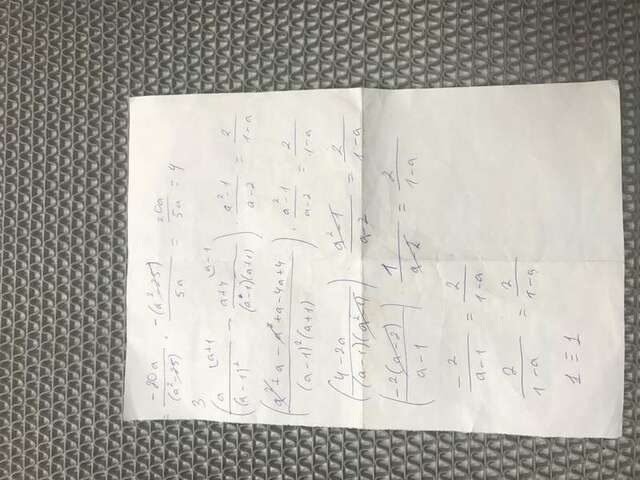 = -20a/(a²-25) · -(a²-25)/5a = 20a/5a = 4
3.
(a/(a-1)² - (a+4)/((a-1)(a+1))) · (a²-1)/(a-2) = 2/(1-a)
((a²+a-a²+a-4a+4)/((a-1)²(a+1))) · (a²-1)/(a-2) = 2/(1-a)
((4-2a)/((a-1)(a²-1))) · (a²-1)/(a-2) = 2/(1-a)
(-2(a-2)/(a-1)) · 1/(a-2) = 2/(1-a)
-2/(a-1) = 2/(1-a)
2/(1-a) = 2/(1-a)
1 = 1